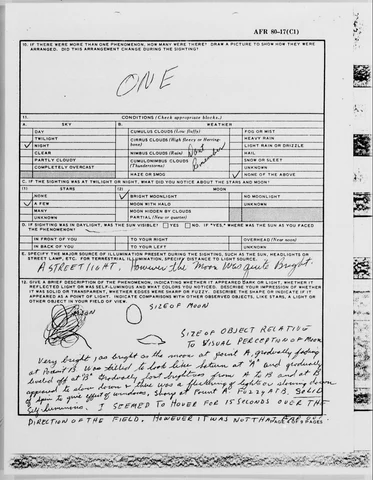 AFR 80-17(C1)
10. IF THERE WERE MORE THAN ONE PHENOMENON, HOW MANY WERE THERE? DRAW A PICTURE TO SHOW HOW THEY WERE
ARRANGED. DID THIS ARRANGEMENT CHANGE DURING THE SIGHTING?
ONE
11. CONDITIONS (Check appropriate blocks.)
A. SKY B. WEATHER
DAY CUMULUS CLOUDS (Low fluffy) FOG OR MIST
TWILIGHT CIRRUS CLOUDS (High fleecy or Herring-bone) HEAVY RAIN
NIGHT LIGHT RAIN OR DRIZZLE
CLEAR NIMBUS CLOUDS (Rain) HAIL
PARTLY CLOUDY CUMULONIMBUS CLOUDS (Thunderstorms) SNOW OR SLEET
COMPLETELY OVERCAST UNKNOWN
HAZE OR SMOG NONE OF THE ABOVE
Don't
Remember
C. IF THE SIGHTING WAS AT TWILIGHT OR NIGHT, WHAT DID YOU NOTICE ABOUT THE STARS AND MOON?
(1) STARS (2) MOON
NONE BRIGHT MOONLIGHT NO MOONLIGHT
A FEW MOON WITH HALO UNKNOWN
MANY MOON HIDDEN BY CLOUDS
UNKNOWN PARTIAL (New or quarter)
D. IF SIGHTING WAS IN DAYLIGHT, WAS THE SUN VISIBLE? YES NO IF "YES," WHERE WAS THE SUN AS YOU FACED
THE PHENOMENON?
IN FRONT OF YOU TO YOUR RIGHT OVERHEAD (Near noon)
IN BACK OF YOU TO YOUR LEFT UNKNOWN
E. SPECIFY THE MAJOR SOURCE OF ILLUMINATION PRESENT DURING THE SIGHTING, SUCH AS THE SUN, HEADLIGHTS OR
STREET LAMP, ETC. FOR TERRESTRIAL ILLUMINATION, SPECIFY DISTANCE TO LIGHT SOURCE.
A STREET LIGHT. However the Moon Was quite Bright.
12. GIVE A BRIEF DESCRIPTION OF THE PHENOMENON, INDICATING WHETHER IT APPEARED DARK OR LIGHT, WHETHER IT
REFLECTED LIGHT OR WAS SELF-LUMINOUS AND WHAT COLORS YOU NOTICED. DESCRIBE YOUR IMPRESSION OF WHETHER
IT WAS SOLID OR TRANSPARENT, WHETHER EDGES WERE SHARP OR FUZZY. DESCRIBE THE SHAPE OR INDICATE IF IT
APPEARED AS A POINT OF LIGHT. INDICATE COMPARISONS WITH OTHER OBSERVED OBJECTS, LIKE STARS, A LIGHT OR
OTHER OBJECT IN YOUR FIELD OF VIEW.
SIZE OF MOON
SIZE OF OBJECT RELATIVE
TO VISUAL PERCEPTION OF MOON.
Very bright, as bright as the moon at point A, gradually fading
at Point B. Was tilted to look like saturn at "A" and gradually
leveled off at "B" Gradually lost brightness from A to B and at B
appeared to slow down & there was a flickering of light on slowing down
of spin to give effect of windows, Sharp at Point A. Fuzzy AT B. Solid
Self-luminous. I SEEMED TO HOVER FOR 15 SECONDS OVER THE
DIRECTION OF THE FIELD, HOWEVER IT WAS NOT THAT FAR OUT.
PAGE 4 OF 9 PAGES